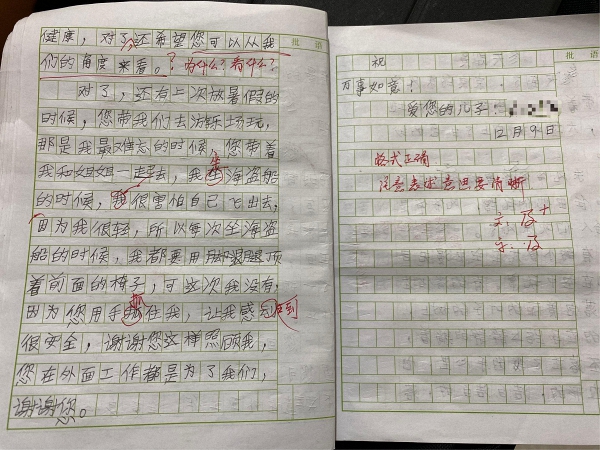 健康，对了还希望您可以从我
们的角度来看。？为什么？看什么？
对了，还有上次放暑假的
时候，您带我们去游乐场玩，
那是我最难忘的时候，您带着
我和姐姐一起去，我坐海盗船
的时候，我很害怕自己飞出去，
因为我很轻，所以每次坐海盗
船的时候，我都要用脚跟腿顶
着前面的椅子，可这次我没有，
因为您用手抓住我，让我感到
很安全，谢谢您这样照顾我，
您在外面工作都是为了我们，
谢谢您。
批语
祝
万事如意！
爱您的儿子：
12月9日
格式正确
注意表述意思要清晰
文：及+
字：及
批语